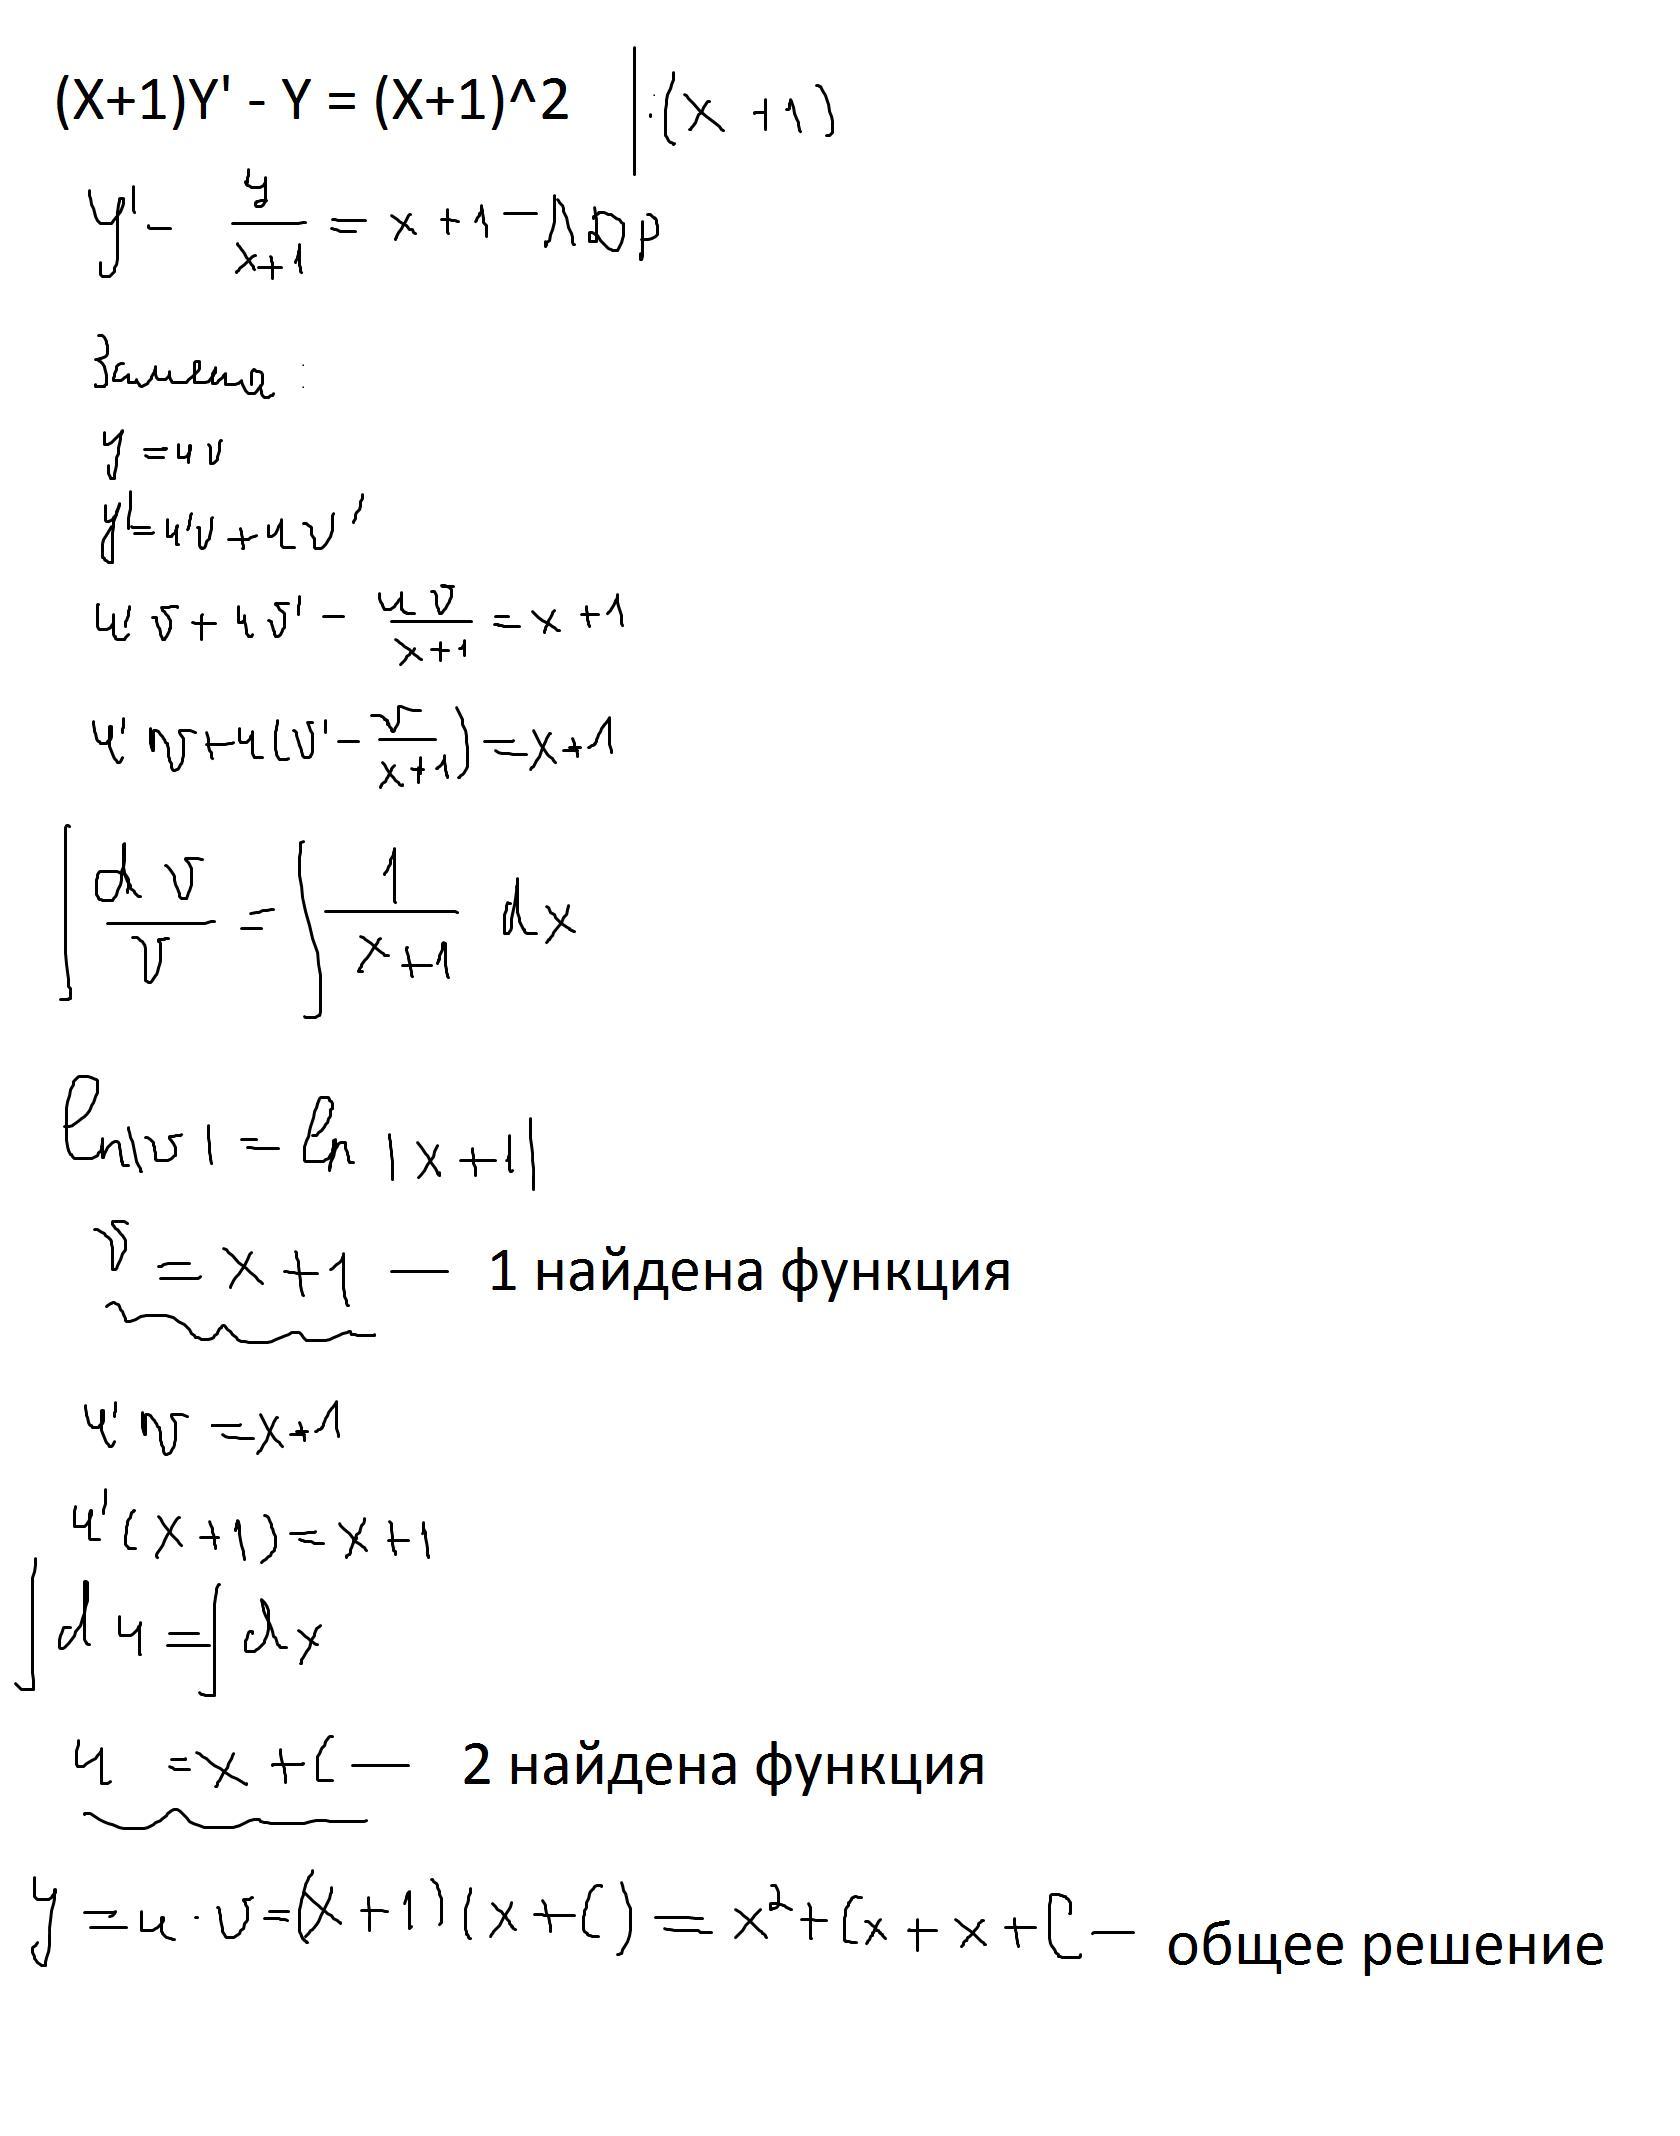 (X+1)Y' - Y = (X+1)^2 | :(x+1)
y' - y/(x+1) = x+1 - ЛДР
Замена:
y = uv
y' = u'v + uv'
u'v + uv' - uv/(x+1) = x+1
u'v + u(v' - v/(x+1)) = x+1
∫ dv/v = ∫ 1/(x+1) dx
ln|v| = ln|x+1|
v = x+1 — 1 найдена функция
u'v = x+1
u'(x+1) = x+1
∫du = ∫dx
u = x + C — 2 найдена функция
y = u·v = (x+1)(x+C) = x² + Cx + x + C — общее решение